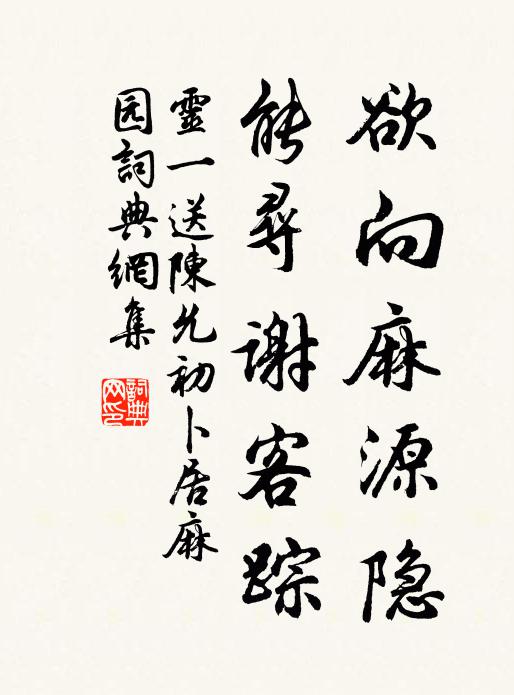 欲向麻源隐
能寻谢客踪
靈一送陳允初卜居麻
园詞典網集
詞典
网印